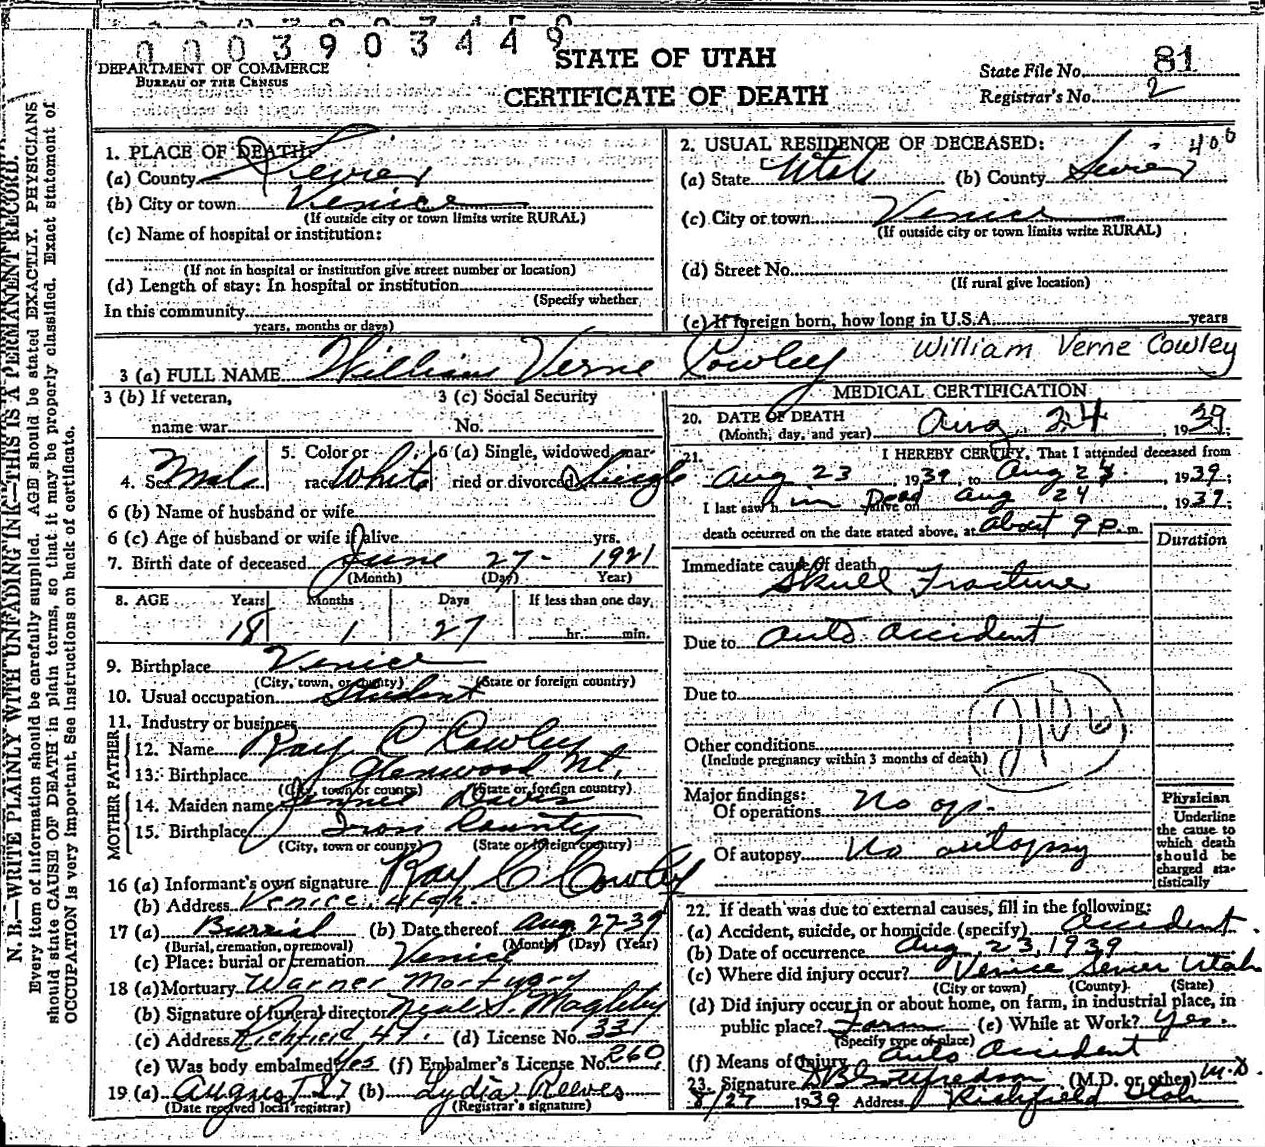 0003903449
STATE OF UTAH
CERTIFICATE OF DEATH
DEPARTMENT OF COMMERCE
BUREAU OF THE CENSUS
State File No. 81
Registrar's No. 2
N. B.—WRITE PLAINLY WITH UNFADING INK—THIS IS A PERMANENT RECORD.
Every item of information should be carefully supplied. AGE should be stated EXACTLY. PHYSICIANS
should state CAUSE OF DEATH in plain terms, so that it may be properly classified. Exact statement of
OCCUPATION is very important. See instructions on back of certificate.
1. PLACE OF DEATH:
(a) County Sevier
(b) City or town Venice
(If outside city or town limits write RURAL)
(c) Name of hospital or institution:
(If not in hospital or institution give street number or location)
(d) Length of stay: In hospital or institution
(Specify whether
In this community
years, months or days)
2. USUAL RESIDENCE OF DECEASED: 406
(a) State Utah (b) County Sevier
(c) City or town Venice
(If outside city or town limits write RURAL)
(d) Street No.
(If rural give location)
(e) If foreign born, how long in U.S.A. years
3 (a) FULL NAME William Verne Cowley William Verne Cowley
3 (b) If veteran,
name war
3 (c) Social Security
No.
4. Sex Male
5. Color or
race White
6 (a) Single, widowed, mar-
ried or divorced Single
6 (b) Name of husband or wife
6 (c) Age of husband or wife if alive yrs.
7. Birth date of deceased June 27- 1921
(Month) (Day) Year)
8. AGE Years Months Days If less than one day,
18 1 27 hr. min.
9. Birthplace Venice
(City, town, or county) (State or foreign country)
10. Usual occupation Student
11. Industry or business
FATHER
12. Name Ray C Cowley
13. Birthplace Glenwood Ut.
(City, town or county) (State or foreign country)
MOTHER
14. Maiden name Jennie Davis
15. Birthplace Iron County
(City, town or county) (State or foreign country)
16 (a) Informant's own signature Ray C Cowley
(b) Address Venice, Utah.
17 (a) Burial (b) Date thereof Aug 27-39
(Burial, cremation, or removal) (Month) (Day) (Year)
(c) Place: burial or cremation Venice
18 (a) Mortuary Warner Mortuary
(b) Signature of funeral director Neal S. Magleby
(c) Address Richfield Ut. (d) License No. 331
(e) Was body embalmed Yes (f) Embalmer's License No. 260
19 (a) August 27 (b) Lydia Reeves
(Date received local registrar) (Registrar's signature)
MEDICAL CERTIFICATION
20. DATE OF DEATH
(Month, day, and year) Aug. 24, 1939.
21. I HEREBY CERTIFY, That I attended deceased from
Aug 23, 1939, to Aug 24, 1939;
I last saw him Dead alive on Aug 24 1939.
death occurred on the date stated above, at about 9 P. m.
Duration
Immediate cause of death
Skull Fracture
Due to Auto Accident
Due to
Other conditions
(Include pregnancy within 3 months of death)
Major findings:
Of operations No op.
Of autopsy No autopsy
Physician
Underline
the cause to
which death
should be
charged sta-
tistically
22. If death was due to external causes, fill in the following:
(a) Accident, suicide, or homicide (specify) Accident.
(b) Date of occurrence Aug 23, 1939
(c) Where did injury occur? Venice Sevier Utah
(City or town) (County) (State)
(d) Did injury occur in or about home, on farm, in industrial place, in
public place? Farm (e) While at Work? Yes.
(Specify type of place)
(f) Means of Injury Auto Accident
23. Signature (M.D. or other) M.D.
8/27 1939 Address Richfield Utah